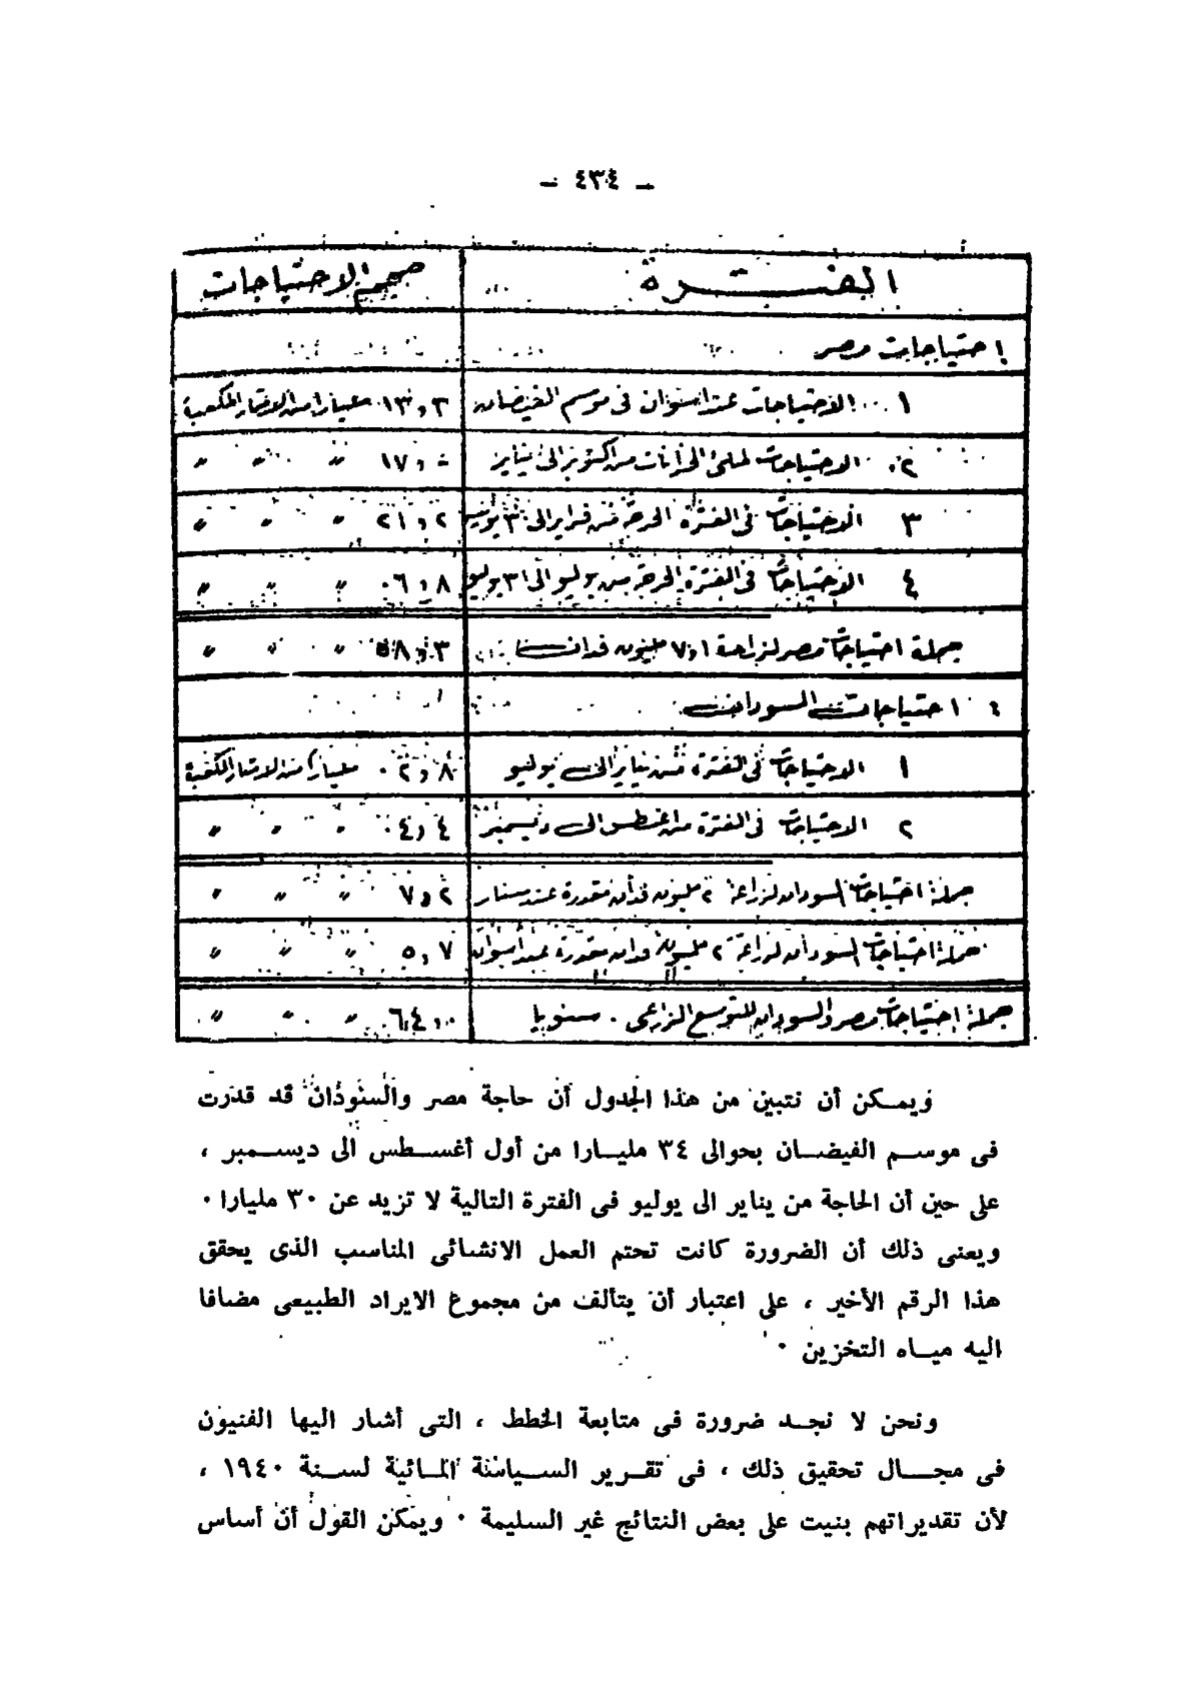 – ٤٣٤ –
الفترة حجم الاحتياجات
احتياجات مصر
١ الاحتياجات عند اسوان فى موسم الفيضان ١٣,٣ مليارا من الامتار المكعبة
٢ الاحتياجات لملئ الخزانات من اكتوبر الى يناير ١٧,٠ 〃 〃 〃
٣ الاحتياجات فى الفترة الحرجة من فبراير الى ٣٠ يونيو ٢١,٢ 〃 〃 〃
٤ الاحتياجات فى الفترة الحرجة من يوليو الى ٣١ يوليو ٦,٨ 〃 〃 〃
جملة احتياجات مصر لزراعة ٧,١ مليون فدان ٥٨,٣ 〃 〃 〃
احتياجات السودان
١ الاحتياجات فى الفترة من يناير الى يوليو ٢,٨ مليارا من الامتار المكعبة
٢ الاحتياجات فى الفترة من اغسطس الى ديسمبر ٤,٤ 〃 〃 〃
جملة احتياجات السودان لزراعة ٢ مليون فدان مقدرة عند سنار ٧,٢ 〃 〃 〃
جملة احتياجات السودان لزراعة ٢ مليون فدان مقدرة عند اسوان ٥,٧ 〃 〃 〃
جملة احتياجات مصر والسودان للتوسع الزراعى . سنويا ٦٤,٠ 〃 〃 〃
ويمكن أن نتبين من هذا الجدول أن حاجة مصر والسودان قد قدرت
فى موسم الفيضان بحوالى ٣٤ مليارا من أول أغسطس الى ديسمبر ،
على حين أن الحاجة من يناير الى يوليو فى الفترة التالية لا تزيد عن ٣٠ مليارا ٠
ويعنى ذلك أن الضرورة كانت تحتم العمل الانشائى المناسب الذى يحقق
هذا الرقم الأخير ، على اعتبار أن يتألف من مجموع الايراد الطبيعى مضافا
اليه مياه التخزين ٠
ونحن لا نجد ضرورة فى متابعة الخطط ، التى أشار اليها الفنيون
فى مجال تحقيق ذلك ، فى تقرير السياسة المائية لسنة ١٩٤٠ ،
لأن تقديراتهم بنيت على بعض النتائج غير السليمة ٠ ويمكن القول أن أساس